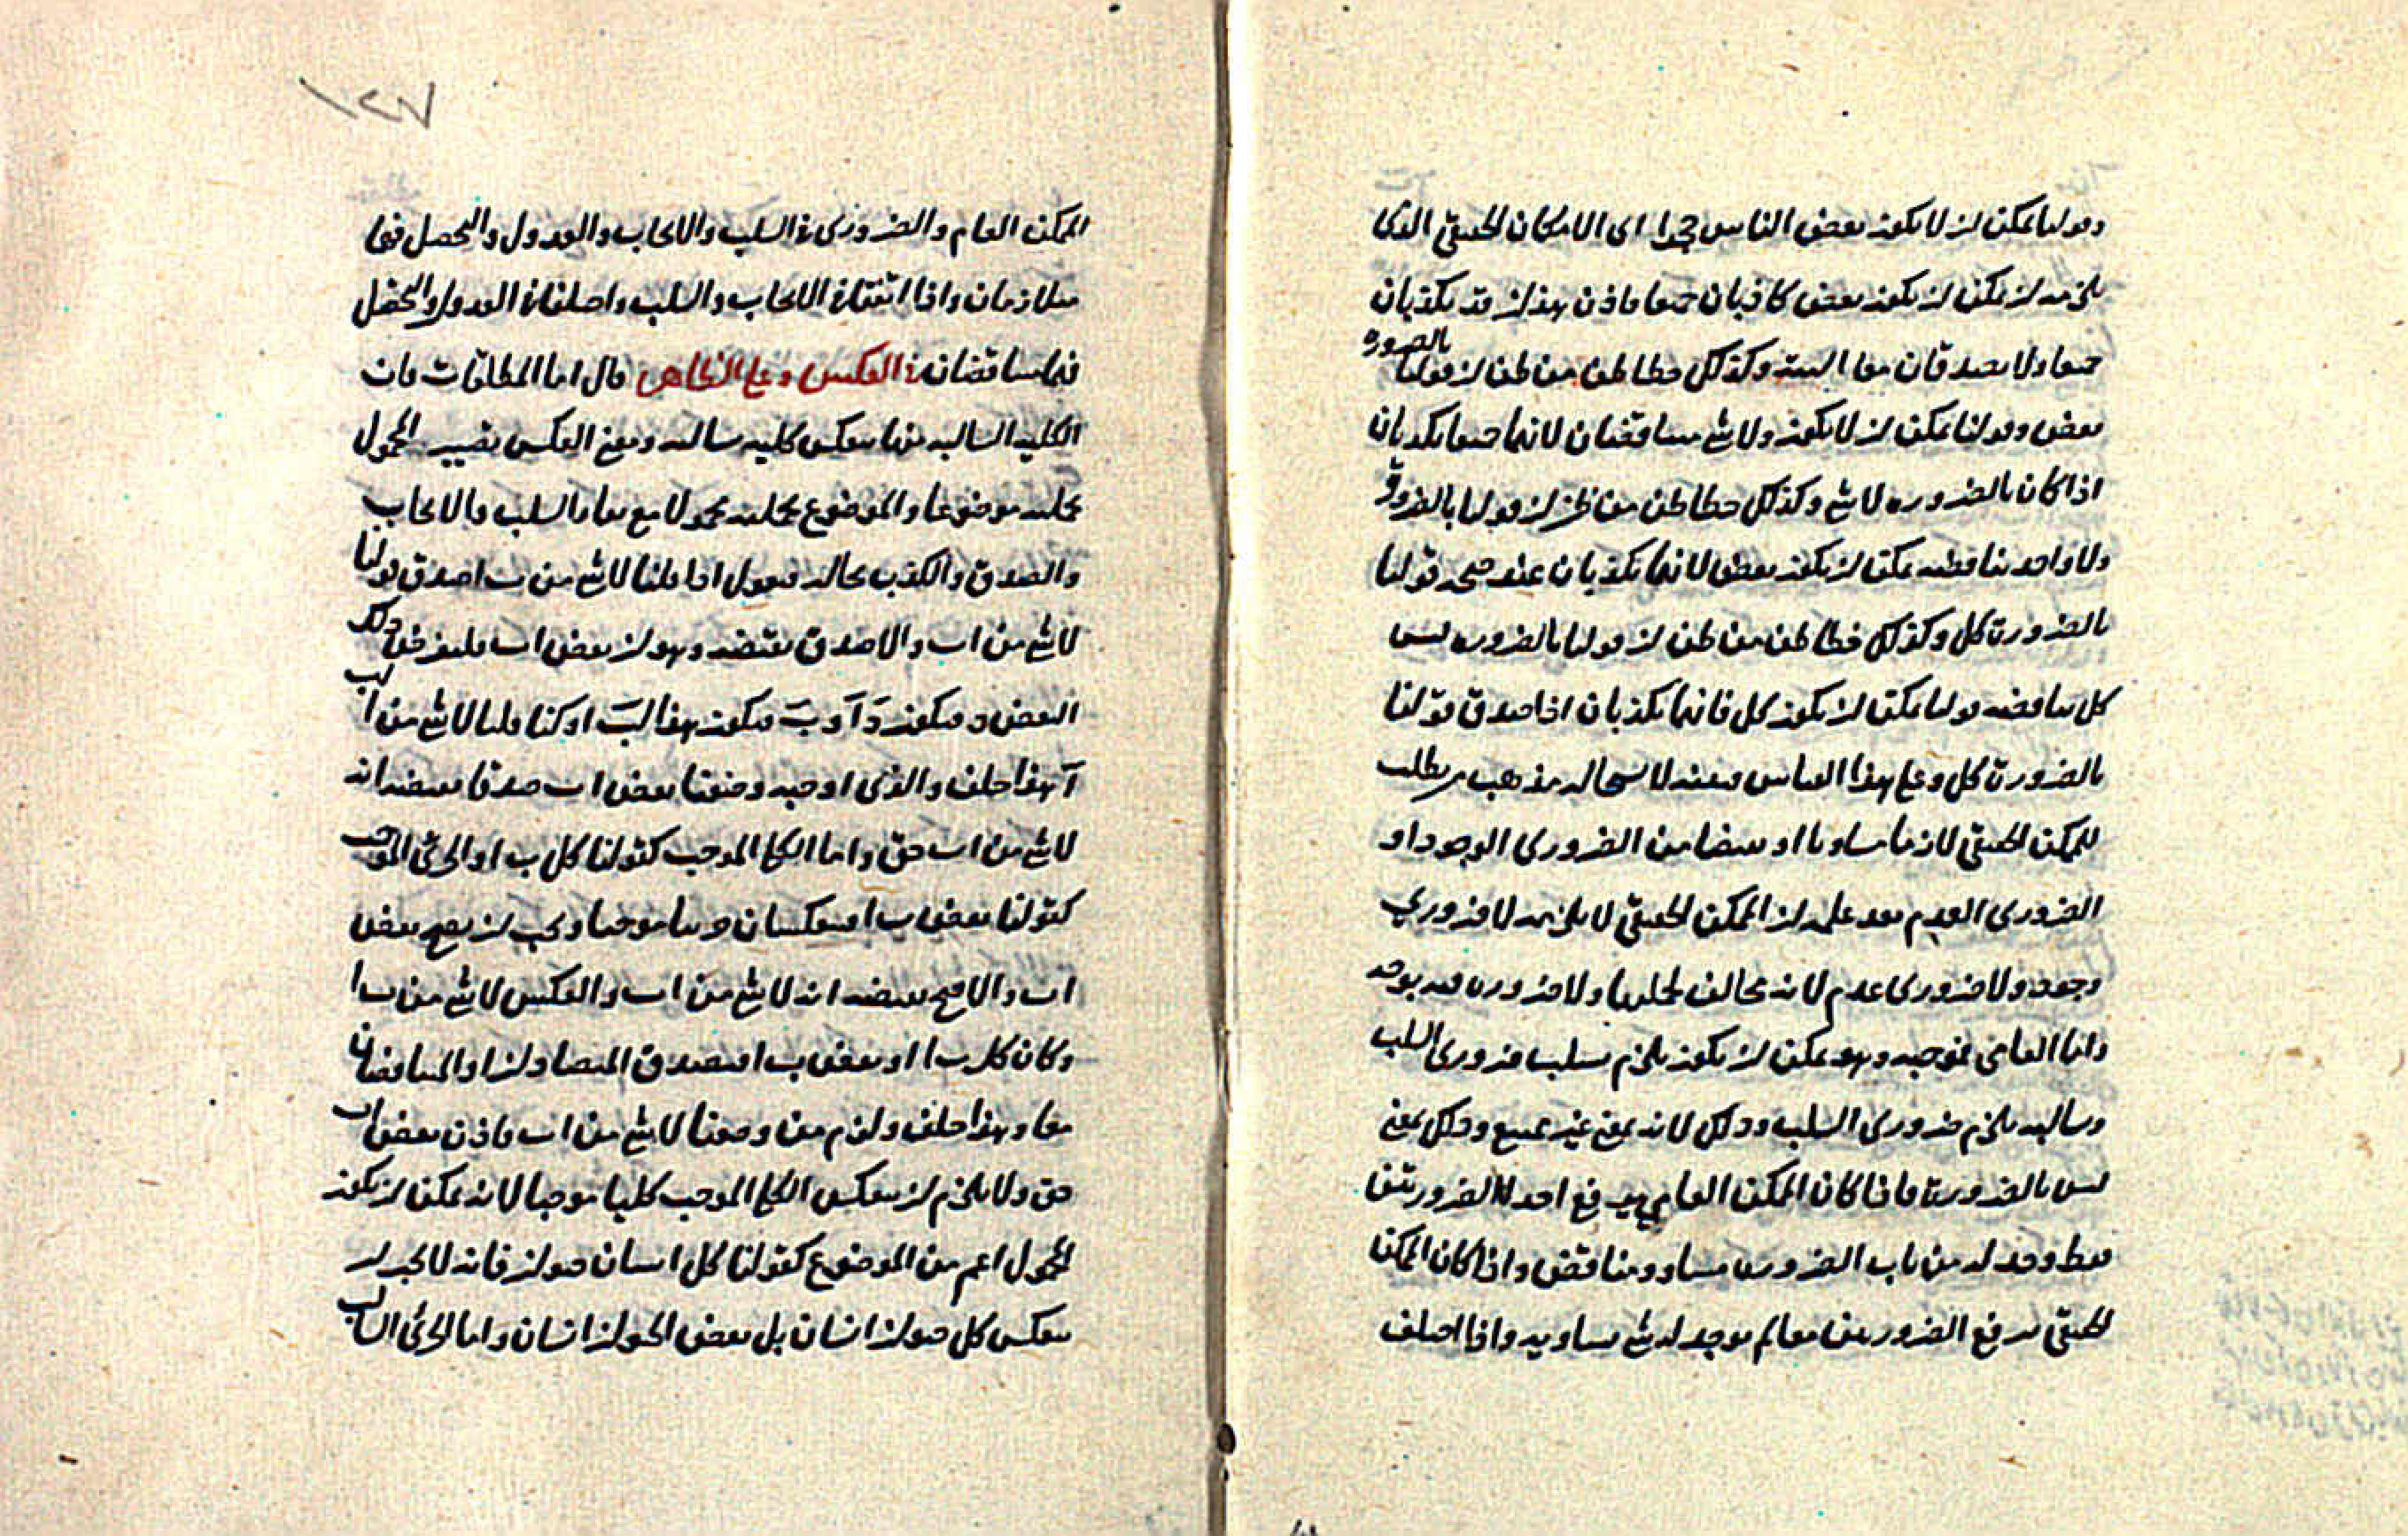 وقولنا يمكن ان لا يكون بعض الناس حجرا اى الامكان الحقيقى الذى
يلزمه ان يمكن ان يكون بعض كاذبان جميعا فاذن هذان قد يكذبان
جميعا ولا يصدقان معا البتة وكذلك خطا ظن من ظن ان قولنا بالضرورة
بعض وقولنا يمكن ان لا يكون ولا شئ متناقضان لانهما جميعا يكذبان
اذا كان بالضروره لا شئ وكذلك خطا ظن من ظن ان قولنا بالضرورة
ولا واحد يناقضه يمكن ان يكون بعض لانهما يكذبان عند صحة قولنا
بالضرورة كل وكذلك خطا ظن من ظن ان قولنا بالضروره ليس
كل يناقضه قولنا يمكن ان يكون كل فانهما يكذبان اذا صدق قولنا
بالضرورة كل وعلى هذا القياس فبعضه لاستحالة مذهب من يطلب
للممكن الحقيقى لازما مساويا او نقيضا من الضرورى الوجود او
الضرورى العدم بعد علمه ان الممكن الحقيقى لا يلزمه لا ضرورى
وجود ولا ضرورى عدم لانه يخالف كليهما ولا ضروره فيه بوجه
واما العامى فموجبه وهو يمكن ان يكون يلزم سلب ضرورى السلب
وسالبه يلزم ضرورى السلب وذلك لانه بمعنى غير ممتنع وذلك بمعنى
ليس بالضرورة فاذا كان الممكن العامى يرفع احد الضرورتين
فقط وجد له من باب الضرورة مساو ومناقض واذا كان الممكن
الحقيقى يرفع الضرورتين معا لم يوجد له شئ يساويه واذا اختلف
١٢٧
الممكن العام والضرورى فى السلب والايجاب والعدول والتحصل فهما
متلازمان واذا اتفقتا فى الايجاب والسلب واختلفتا فى العدول والتحصل
فهما متناقضان فى العكس وعلى الظاهر قال اما المطلقات فان
الكليه السالبه منها ينعكس كليه سالبه ومعنى العكس تصيير المحمول
بكليته موضوعا والموضوع بكليته محمولا مع بقاء السلب والايجاب
والصدق والكذب بحاله فنقول اذا قلنا لا شئ من ب ا صدق قولنا
لا شئ من ا ب والا صدق نقيضه وهو ان بعض ا ب فلنفرض ذلك
البعض د فيكون د آ و ب فيكون هذا الب ا وكنا قلنا لا شئ من ب
آ هذا خلف والذى اوجبه وضعنا بعض ا ب صدقا فنقيضه انه
لا شئ من ا ب حق واما الكلى الموجب كقولنا كل ب ا والجزئى الموجب
كقولنا بعض ب ا فينعكسان جزئيا موجبا ويجب ان يصح بعض
ا ب والا فيصح نقيضه انه لا شئ من ا ب والعكس لا شئ من ب ا
وكان كل ب ا او بعض ب ا فيصدق المتضادان او المتناقضان
معا وهذا خلف ولزم من وضعنا لا شئ من ا ب فاذن بعض ا ب
حق ولا يلزم ان ينعكس الكلى الموجب كليا موجبا لانه يمكن ان يكون
المحمول اعم من الموضوع كقولنا كل انسان حيوان فانه لا يجب ان
ينعكس كل حيوان انسان بل بعض الحيوان انسان واما الجزئى السالب